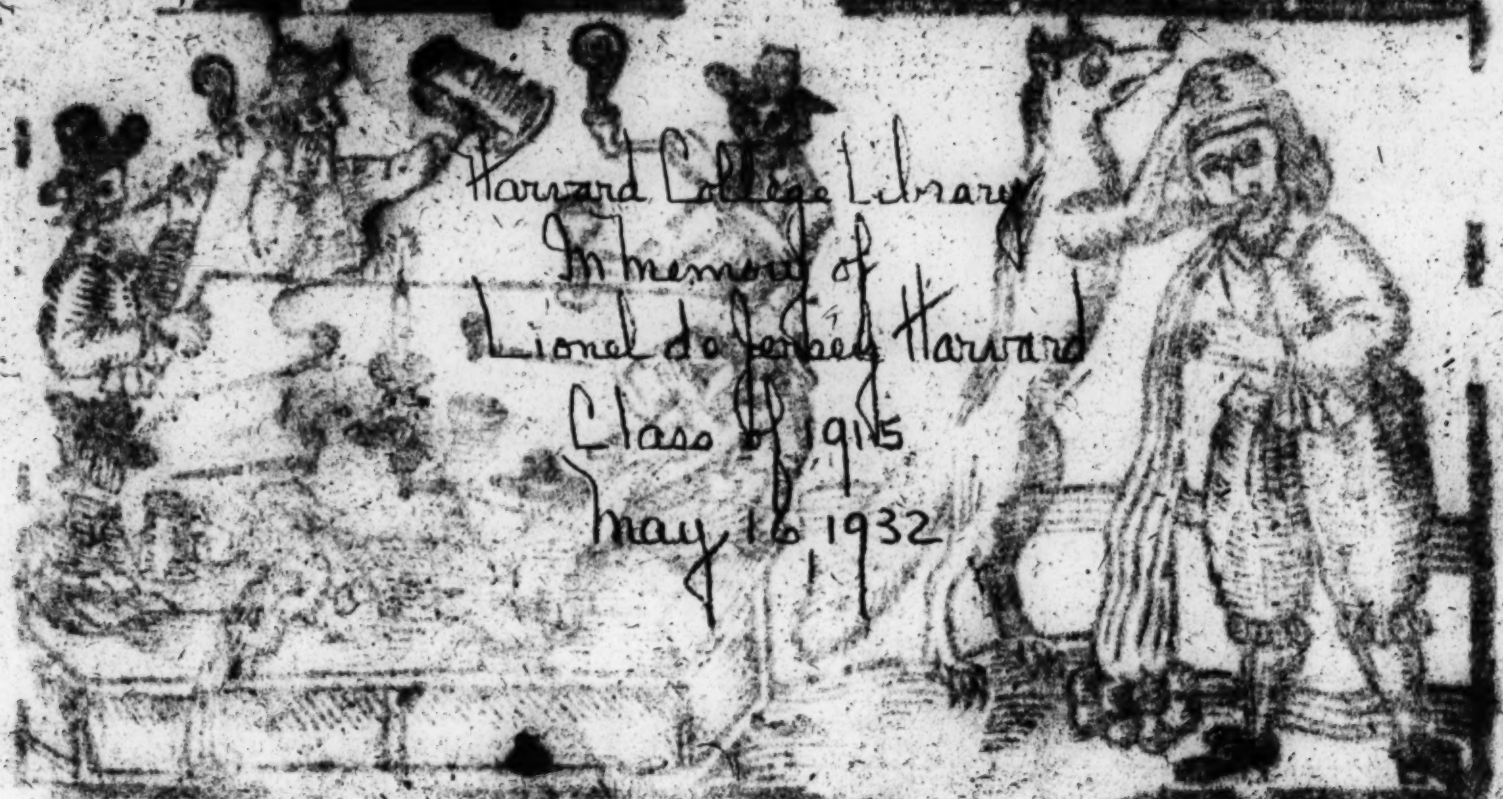 Harvard College Library
In memory of
Lionel de Jersey Harvard
Class of 1915
May 16, 1932